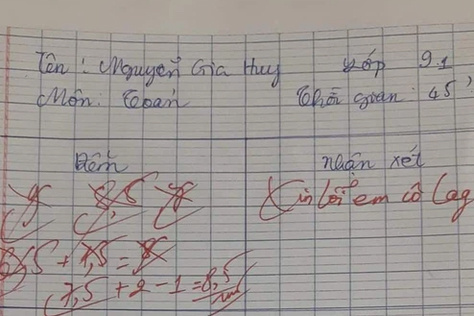 Tên : Nguyễn Gia Huy Lớp 9.1
Môn : Toán Thời gian : 45'
Điểm nhận xét
8,5
Xin lỗi em cô lag
+ 7,5 =
7,5 + 2 - 1 = 8,5